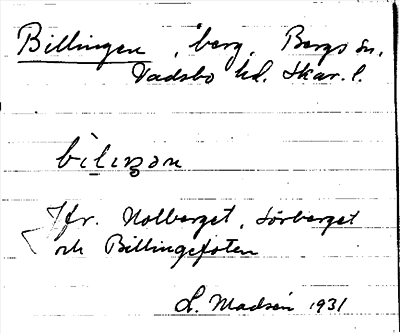 Billingen, berg, Bergs sn,
Vadsbo hd. Skar. l.
bı̀lıŋən
Jfr. Nolberget, Sörberget
och Billingefoten
L. Madsén 1931